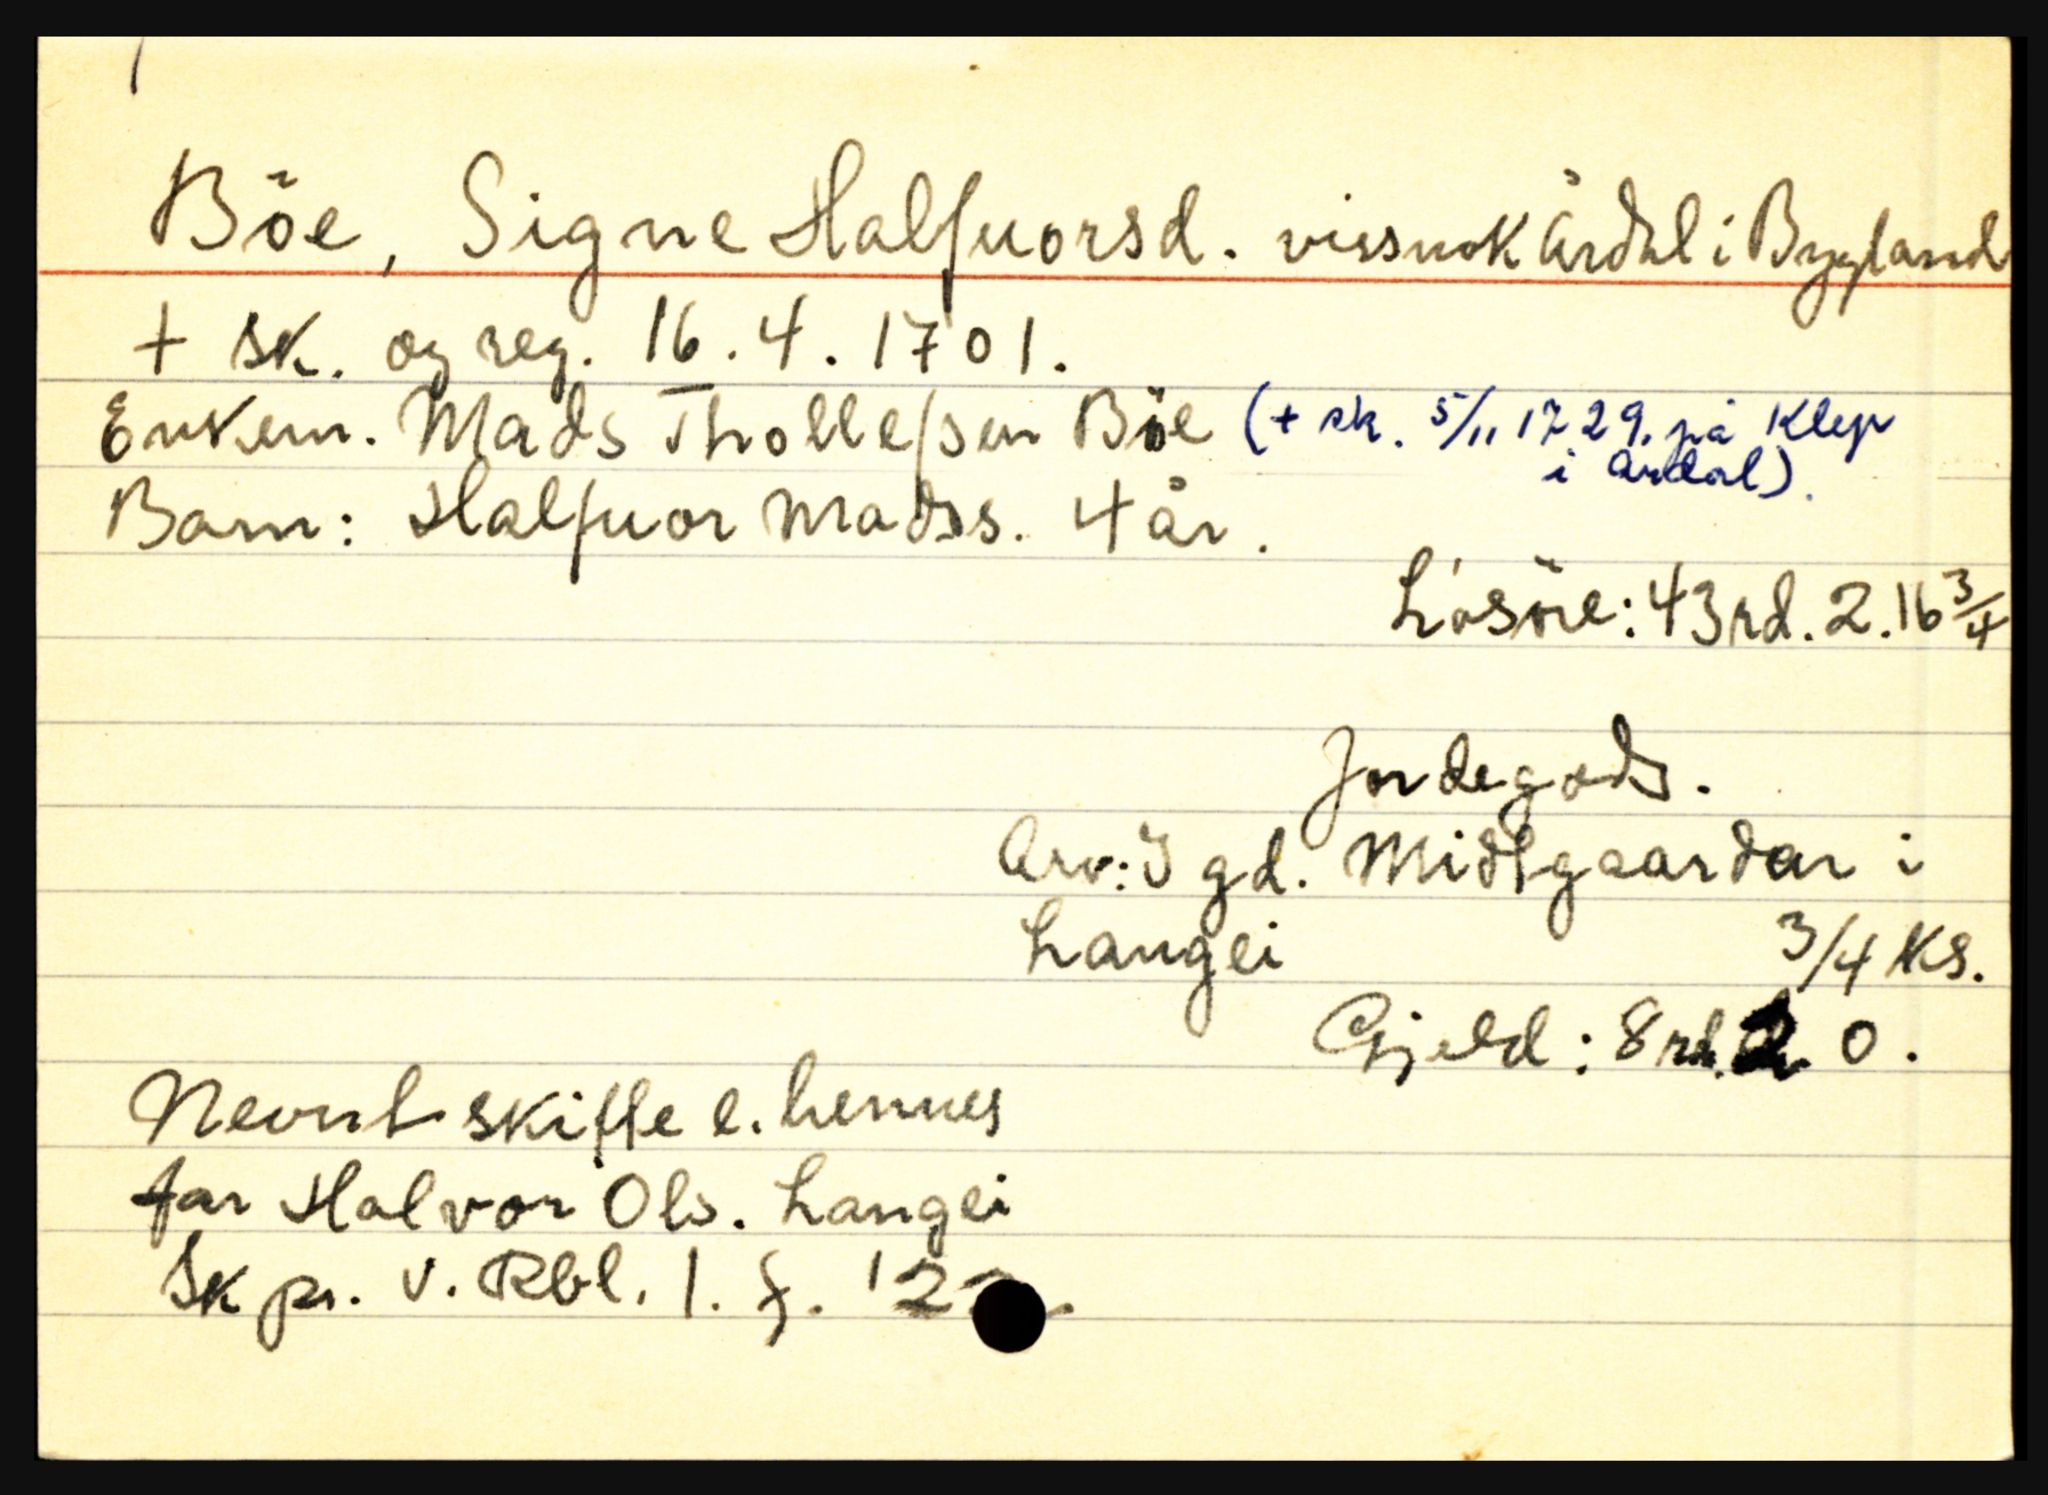 Böe, Signe Halfuorsd. vissnok Årdal i Bygland
+ sk. og reg. 16.4.1701.
Enkem. Mads Thollefsen Böe (+ sk. 5/11 1729. på Klep
i Årdal).
Barn: Halfuor Madss. 4 år.
Lösöre: 43 rd. 2. 16 3/4
Jordegods.
Arv: I gd. Midtgaardar i
Langei 3/4 ks.
Gjeld: 8 rd. 2 0.
Nevnt skifte e. hennes
far Halvor Ols. Langei
Sk pr. v. Rbl. 1. f.